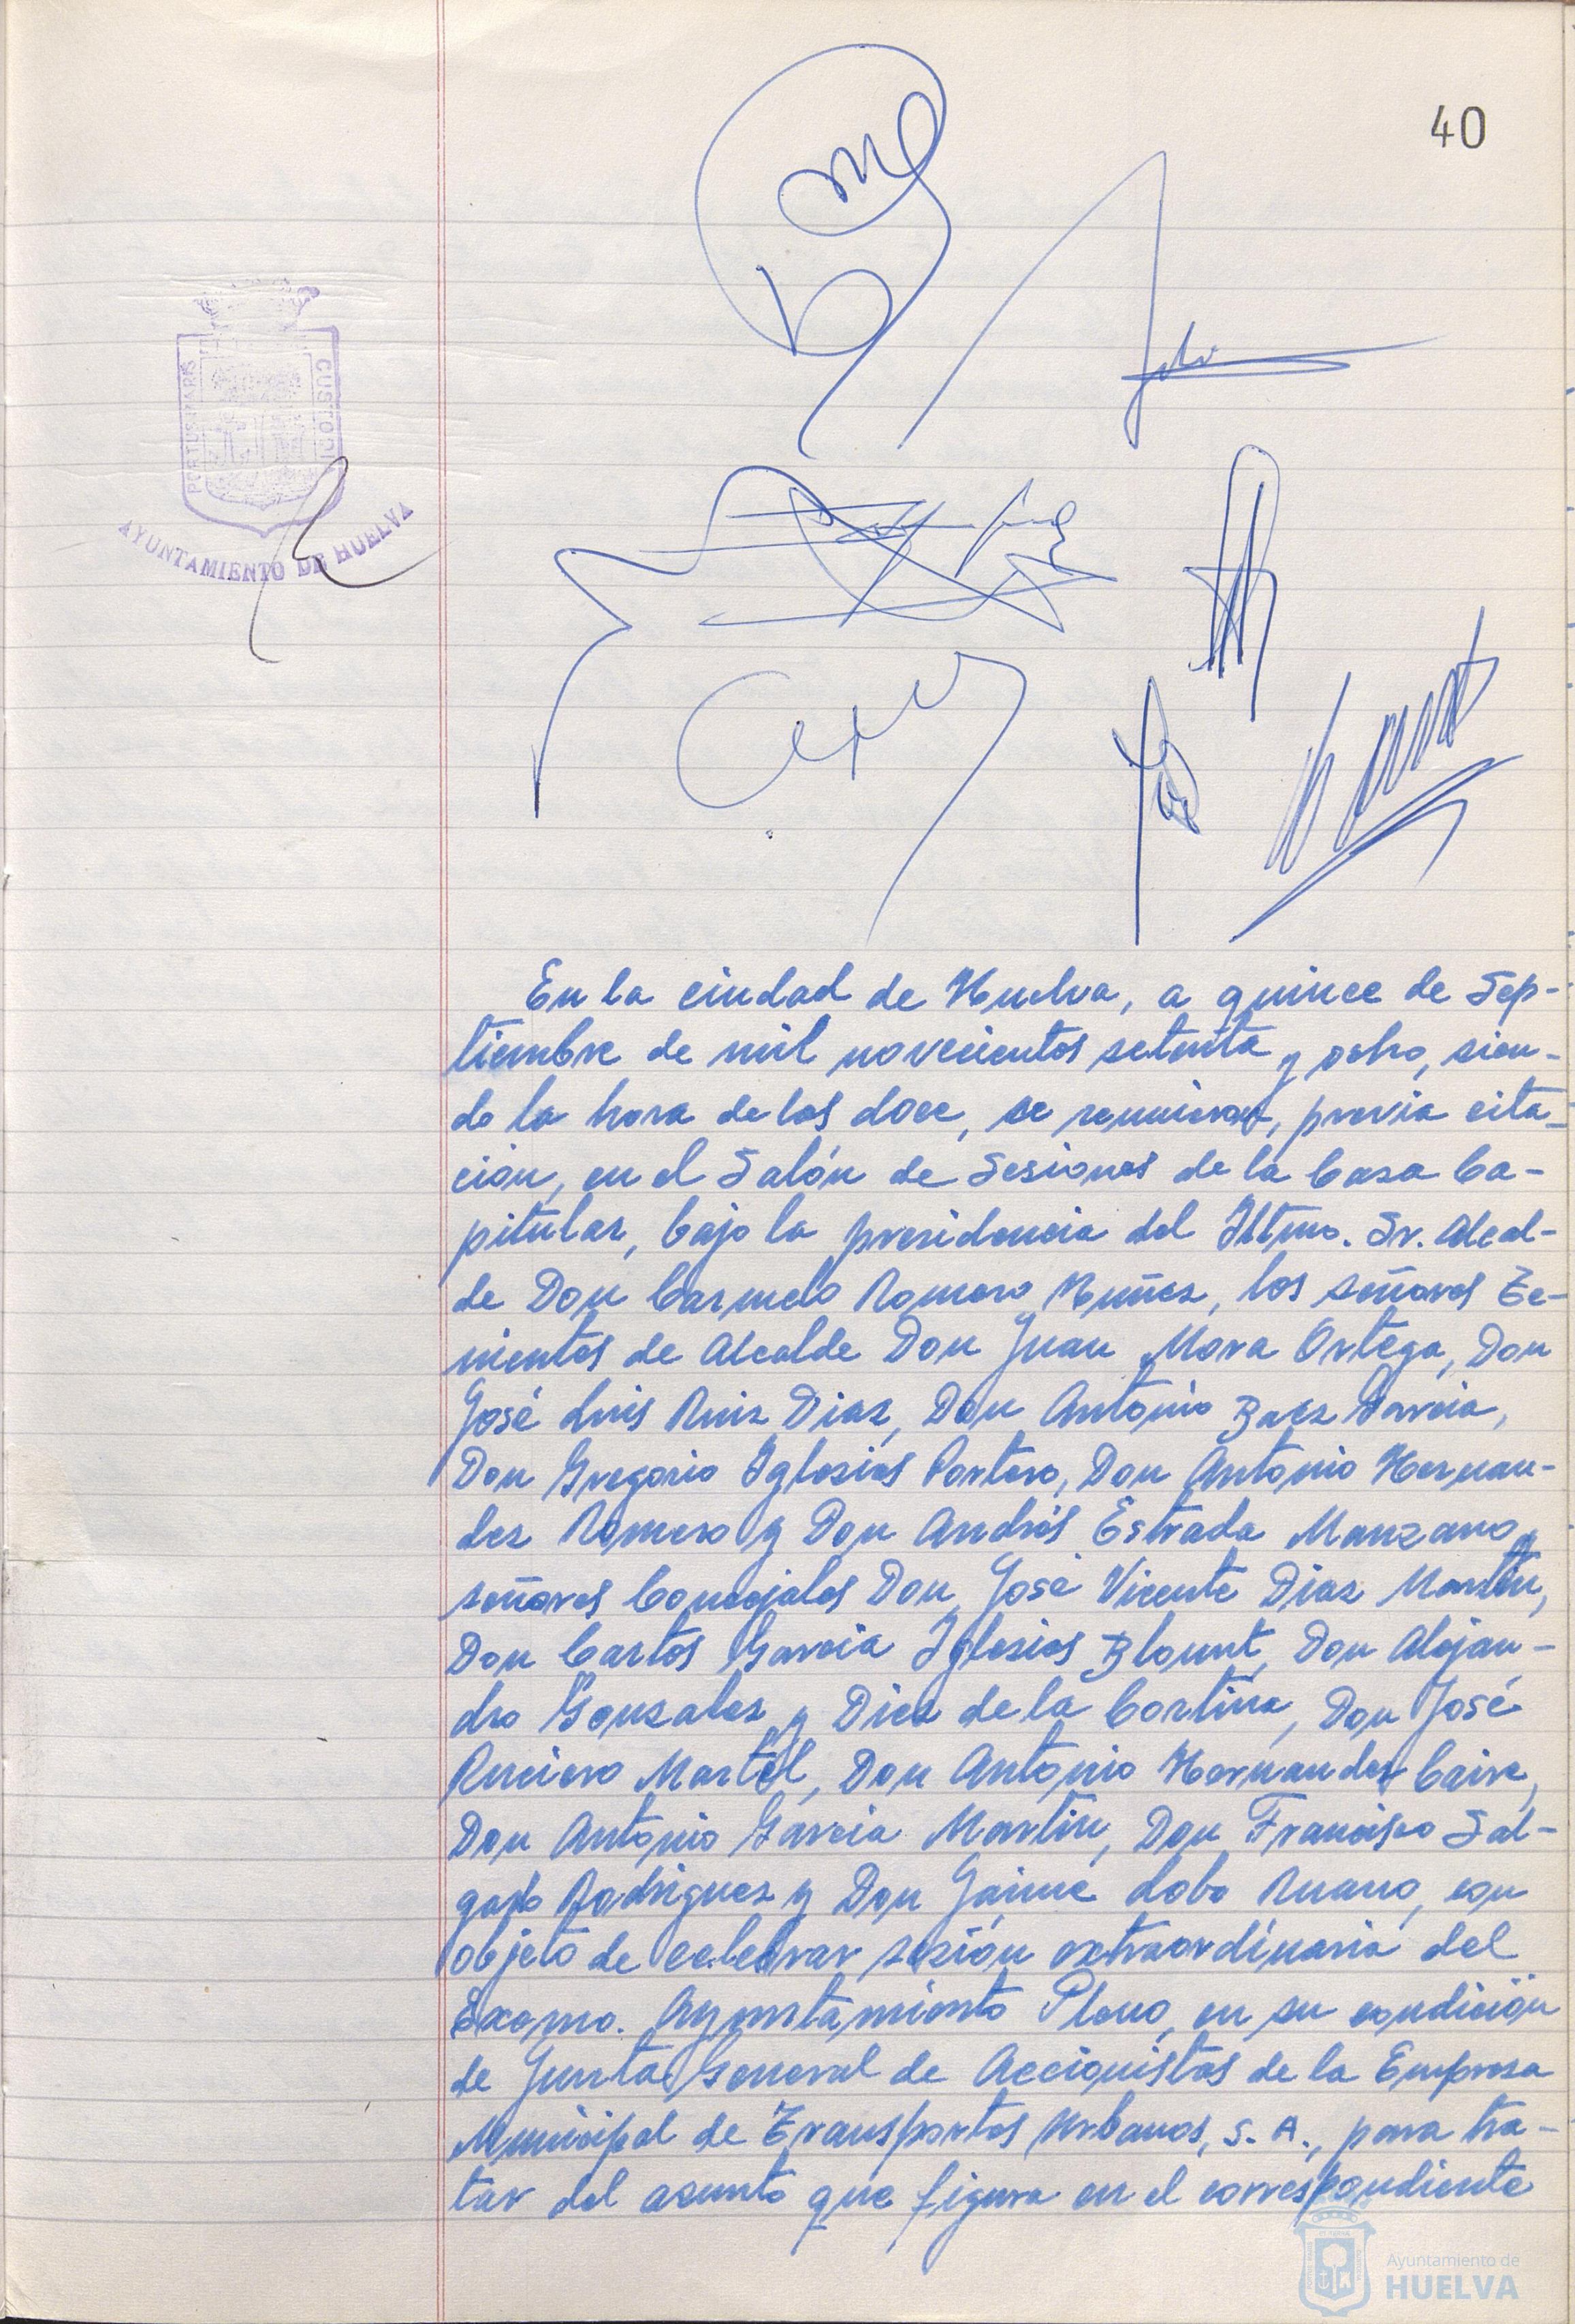 40
PORTUS MARIS
CUSTODI
AYUNTAMIENTO DE HUELVA
En la ciudad de Huelva, a quince de Sep-
tiembre de mil novecientos setenta y ocho, sien-
do la hora de las doce, se reunieron, previa cita-
ción, en el Salón de Sesiones de la Casa Ca-
pitular, bajo la presidencia del Iltmo. Sr. Alcal-
de Don Carmelo Romero Nuñez, los señores Te-
nientes de Alcalde Don Juan Mora Ortega, Don
José Luis Ruiz Diaz, Don Antonio Baez Garcia,
Don Gregorio Iglesias Portero, Don Antonio Hernan-
dez Romero y Don Andrés Estrada Manzano y
señores Concejales Don José Vicente Diaz Martin,
Don Carlos Garcia Iglesias Blount, Don Alejan-
dro Gonzalez y Diez de la Cortina, Don José
Ruciero Martél, Don Antonio Hernandez Caire,
Don Antonio Garcia Martin, Don Francisco Sal-
gado Rodriguez y Don Jaime Lobo Ruano, con
objeto de celebrar sesión extraordinaria del
Excmo. Ayuntamiento Pleno, en su condición
de Junta General de Accionistas de la Empresa
Municipal de Transportes Urbanos, S. A., para tra-
tar del asunto que figura en el correspondiente
Ayuntamiento de
HUELVA